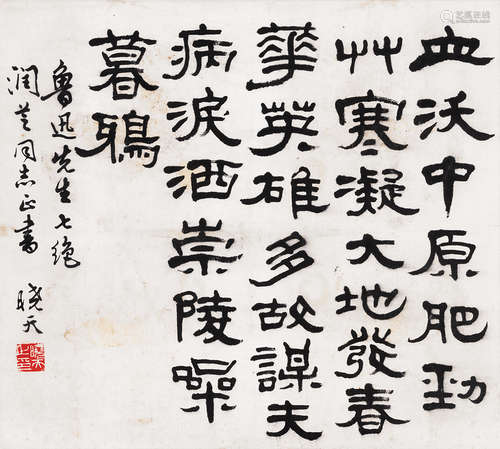 血沃中原肥劲
艸寒凝大地發春
華英雄多故謀夫
病淚洒崇陵噪
暮鴉
魯迅先生七绝
润芝同志正書
晓天